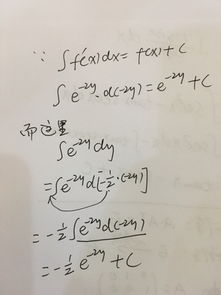 ∵ ∫f'(x)dx = f(x) + C
∫e^{-2y}·d(-2y) = e^{-2y} + C
而这里
∫e^{-2y}dy
= ∫e^{-2y}d[-\frac{1}{2}·(-2y)]
= -\frac{1}{2}∫e^{-2y}d(-2y)
= -\frac{1}{2}e^{-2y} + C